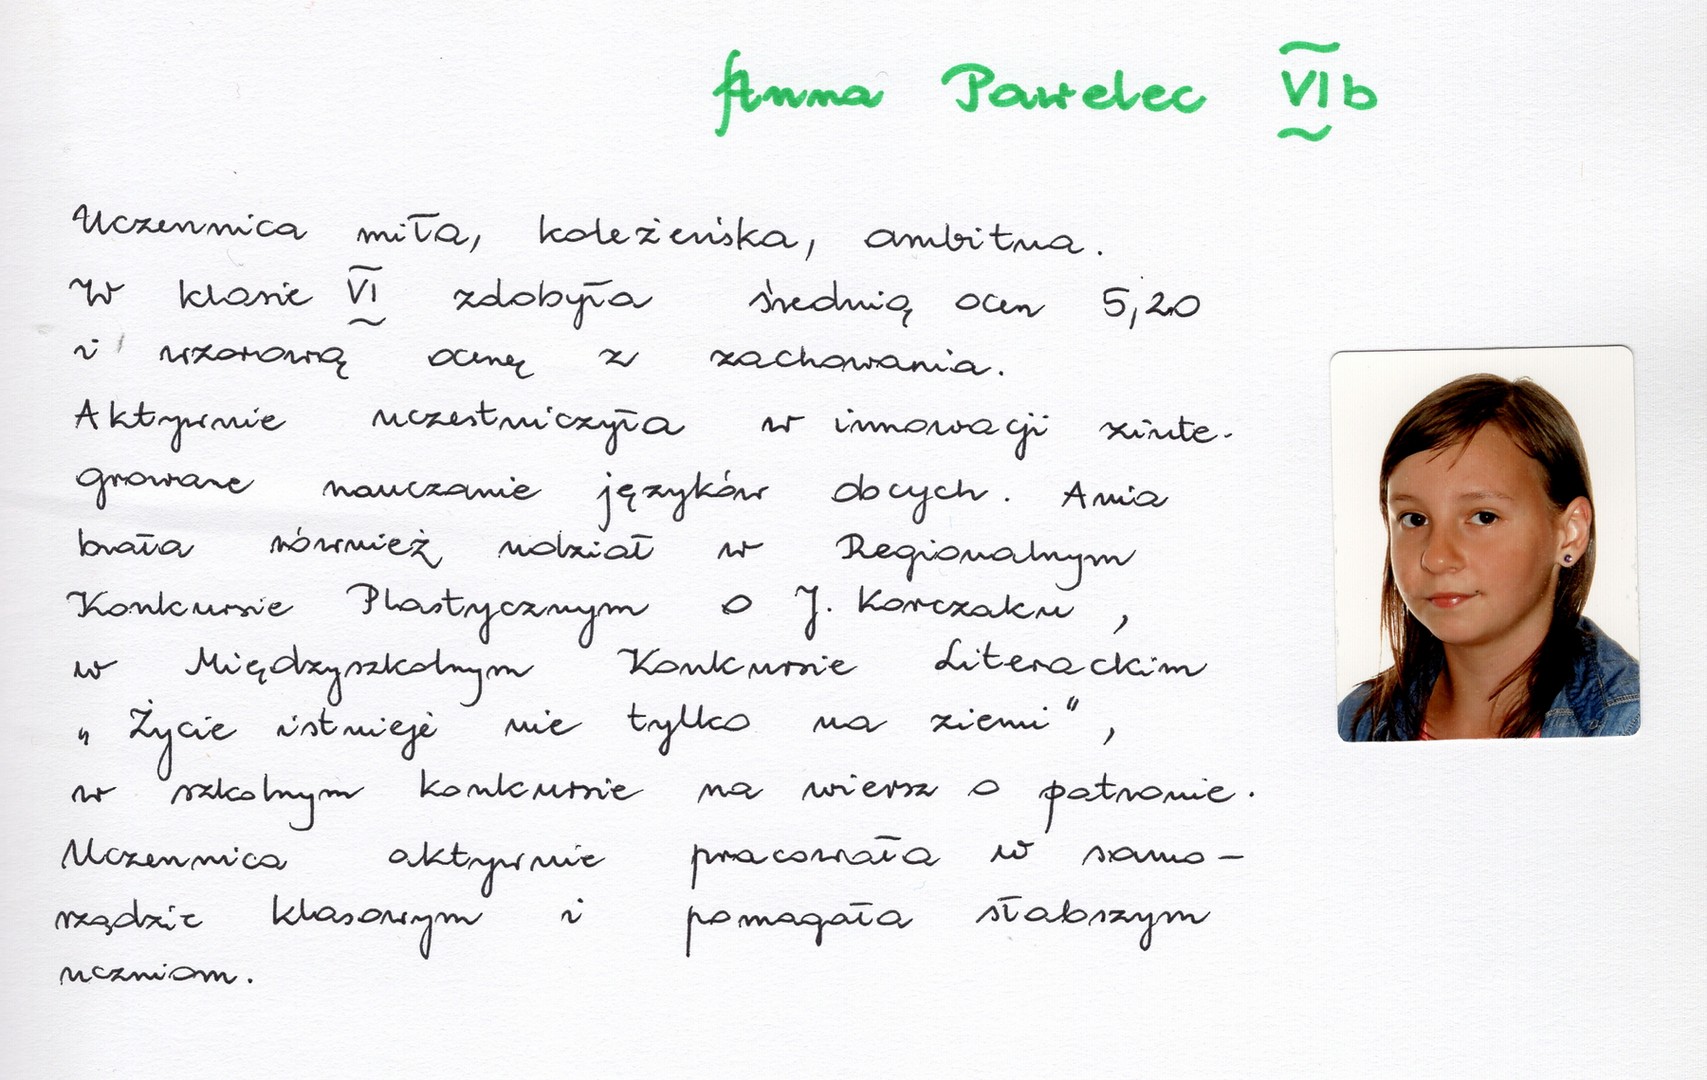 Anna Pawelec VI b
Uczennica miła, koleżeńska, ambitna.
W klasie VI zdobyła średnią ocen 5,20
i wzorową ocenę z zachowania.
Aktywnie uczestniczyła w innowacji zinte-
growane nauczanie języków obcych. Ania
brała również udział w Regionalnym
Konkursie Plastycznym o J. Korczaku,
w Międzyszkolnym Konkursie Literackim
„Życie istnieje nie tylko na ziemi",
w szkolnym konkursie na wiersz o patronie.
Uczennica aktywnie pracowała w samo-
rządzie klasowym i pomagała słabszym
uczniom.